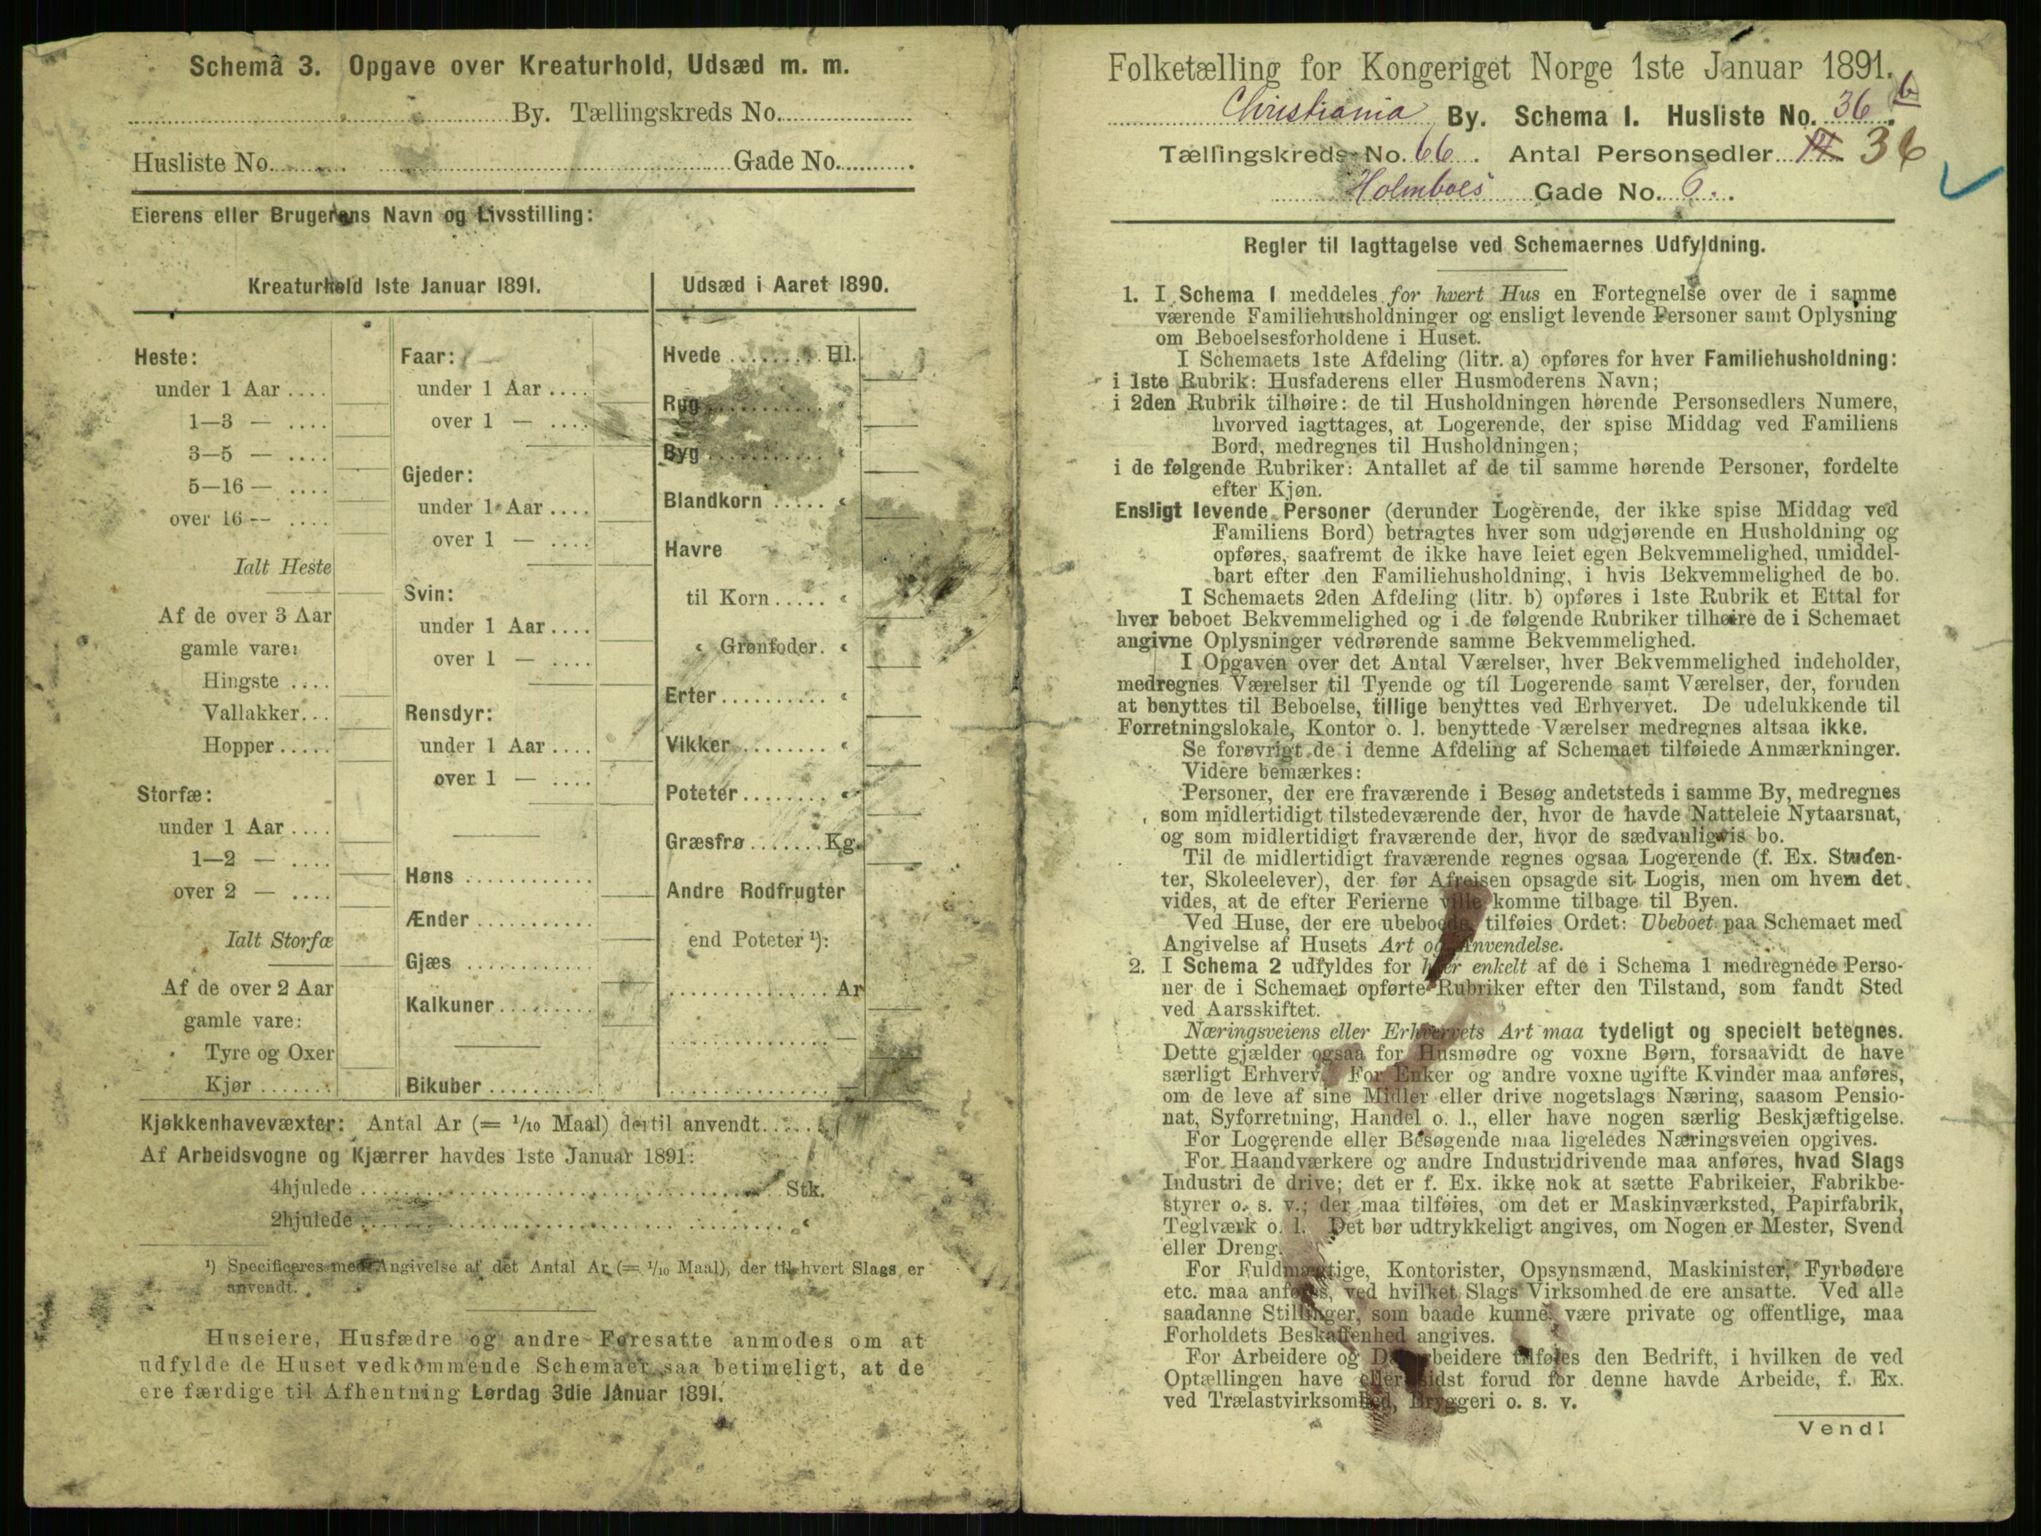 Schema 3. Opgave over Kreaturhold, Udsæd m. m.
By. Tællingskreds No.
Husliste No. Gade No.
Eierens eller Brugerens Navn og Livsstilling:
Kreaturhold 1ste Januar 1891.
Heste:
under 1 Aar
1—3 —
3—5 —
5—16 —
over 16 —
Ialt Heste
Af de over 3 Aar
gamle vare:
Hingste
Vallakker
Hopper
Storfæ:
under 1 Aar
1—2 —
over 2 —
Ialt Storfæ
Af de over 2 Aar
gamle vare:
Tyre og Oxer
Kjør
Faar:
under 1 Aar
over 1 —
Gjeder:
under 1 Aar
over 1 —
Svin:
under 1 Aar
over 1 —
Rensdyr:
under 1 Aar
over 1 —
Høns
Ænder
Gjæs
Kalkuner
Bikuber
Udsæd i Aaret 1890.
Hvede Hl.
Rug "
Byg "
Blandkorn "
Havre
til Korn "
" Grønfoder. "
Erter "
Vikker "
Poteter "
Græsfrø Kg.
Andre Rodfrugter
end Poteter ¹):
Ar
—
—
Kjøkkenhavevæxter: Antal Ar (= 1/10 Maal) dertil anvendt
Af Arbeidsvogne og Kjærrer havdes 1ste Januar 1891:
4hjulede Stk.
2hjulede "
¹) Specificeres med Angivelse af det Antal Ar (= 1/10 Maal), der til hvert Slags er
anvendt.
Huseiere, Husfædre og andre Foresatte anmodes om at
udfylde de Huset vedkommende Schemaer saa betimeligt, at de
ere færdige til Afhentning Lørdag 3die Januar 1891.
Folketælling for Kongeriget Norge 1ste Januar 1891.
Christiania By. Schema I. Husliste No. 36 b.
Tællingskreds No. 66. Antal Personsedler 36
Holmboes Gade No. 6.
Regler til Iagttagelse ved Schemaernes Udfyldning.
1. I Schema 1 meddeles for hvert Hus en Fortegnelse over de i samme
værende Familiehusholdninger og ensligt levende Personer samt Oplysning
om Beboelsesforholdene i Huset.
I Schemaets 1ste Afdeling (litr. a) opføres for hver Familiehusholdning:
i 1ste Rubrik: Husfaderens eller Husmoderens Navn;
i 2den Rubrik tilhøire: de til Husholdningen hørende Personsedlers Numere,
hvorved iagttages, at Logerende, der spise Middag ved Familiens
Bord, medregnes til Husholdningen;
i de følgende Rubriker: Antallet af de til samme hørende Personer, fordelte
efter Kjøn.
Ensligt levende Personer (derunder Logerende, der ikke spise Middag ved
Familiens Bord) betragtes hver som udgjørende en Husholdning og
opføres, saafremt de ikke have leiet egen Bekvemmelighed, umiddel-
bart efter den Familiehusholdning, i hvis Bekvemmelighed de bo.
I Schemaets 2den Afdeling (litr. b) opføres i 1ste Rubrik et Ettal for
hver beboet Bekvemmelighed og i de følgende Rubriker tilhøire de i Schemaet
angivne Oplysninger vedrørende samme Bekvemmelighed.
I Opgaven over det Antal Værelser, hver Bekvemmelighed indeholder,
medregnes Værelser til Tyende og til Logerende samt Værelser, der, foruden
at benyttes til Beboelse, tillige benyttes ved Erhvervet. De udelukkende til
Forretningslokale, Kontor o. l. benyttede Værelser medregnes altsaa ikke.
Se forøvrigt de i denne Afdeling af Schemaet tilføiede Anmærkninger.
Videre bemærkes:
Personer, der ere fraværende i Besøg andetsteds i samme By, medregnes
som midlertidigt tilstedeværende der, hvor de havde Natteleie Nytaarsnat,
og som midlertidigt fraværende der, hvor de sædvanligvis bo.
Til de midlertidigt fraværende regnes ogsaa Logerende (f. Ex. Studen-
ter, Skoleelever), der før Afreisen opsagde sit Logis, men om hvem det
vides, at de efter Ferierne ville komme tilbage til Byen.
Ved Huse, der ere ubeboede, tilføies Ordet: Ubeboet paa Schemaet med
Angivelse af Husets Art og Anvendelse.
2. I Schema 2 udfyldes for hver enkelt af de i Schema 1 medregnede Perso-
ner de i Schemaet opførte Rubriker efter den Tilstand, som fandt Sted
ved Aarsskiftet.
Næringsveiens eller Erhvervets Art maa tydeligt og specielt betegnes.
Dette gjælder ogsaa for Husmødre og voxne Børn, forsaavidt de have
særligt Erhverv. For Enker og andre voxne ugifte Kvinder maa anføres,
om de leve af sine Midler eller drive nogetslags Næring, saasom Pensio-
nat, Syforretning, Handel o. l., eller have nogen særlig Beskjæftigelse.
For Logerende eller Besøgende maa ligeledes Næringsveien opgives.
For Haandværkere og andre Industridrivende maa anføres, hvad Slags
Industri de drive; det er f. Ex. ikke nok at sætte Fabrikeier, Fabrikbe-
styrer o. s. v.; der maa tilføies, om det er Maskinværksted, Papirfabrik,
Teglværk o. l. Det bør udtrykkeligt angives, om Nogen er Mester, Svend
eller Dreng.
For Fuldmægtige, Kontorister, Opsynsmænd, Maskinister, Fyrbødere
etc. maa anføres, ved hvilket Slags Virksomhed de ere ansatte. Ved alle
saadanne Stillinger, som baade kunne være private og offentlige, maa
Forholdets Beskaffenhed angives.
For Arbeidere og Dagarbeidere tilføies den Bedrift, i hvilken de ved
Optællingen have eller sidst forud for denne havde Arbeide, f. Ex.
ved Trælastvirksomhed, Bryggeri o. s. v.
Vend!